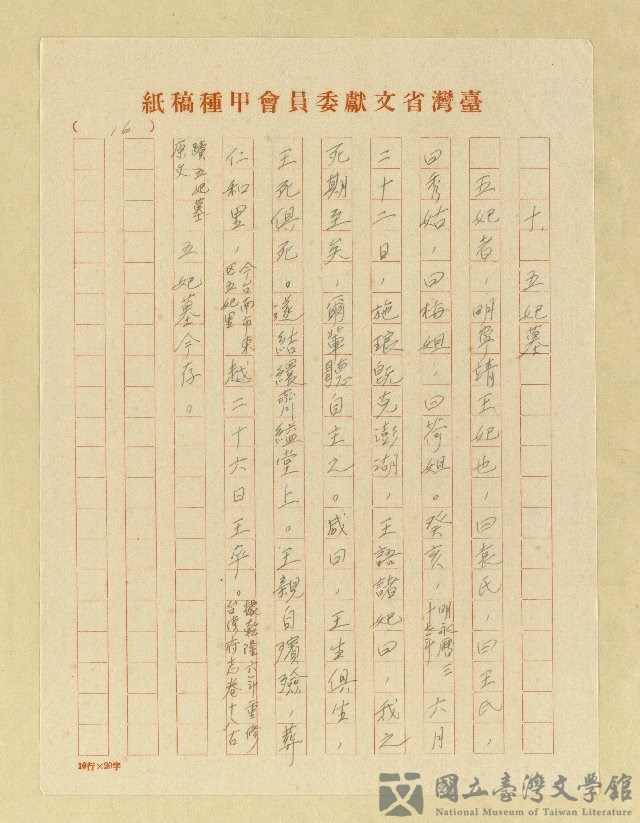 紙稿種甲會員委獻文省灣臺
( 16 )
十、五妃墓
五妃者，明寧靖王妃也，曰袁氏，曰王氏，
曰秀姑，曰梅姐，曰荷姐。癸亥，明永曆三十七年六月
二十二日，施琅既克澎湖，王語諸妃曰，我之
死期至矣，爾輩聽自主之。咸曰，王生俱生，
王死俱死。遂結繯齊縊堂上。王親自殯殮，葬
仁和里，今台南市東區五妃里越二十六日王卒。據乾隆六年重修台灣府志卷十八古
蹟五妃墓原文五妃墓今存。
10行×20字
國立臺灣文學館
National Museum of Taiwan Literature